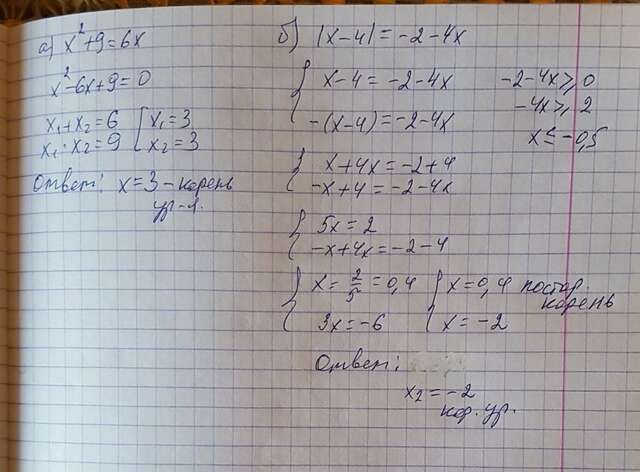 а) x²+9=6x
x²-6x+9=0
x₁+x₂=6 [x₁=3
x₁·x₂=9 x₂=3
Ответ: x=3-корень
ур-я.
б) |x-4|=-2-4x
{ x-4=-2-4x
-(x-4)=-2-4x
-2-4x≥0
-4x≥2
x≤-0,5
{ x+4x=-2+4
-x+4=-2-4x
{ 5x=2
-x+4x=-2-4
{ x=2/5=0,4
3x=-6
{ x=0,4 постор.
корень
x=-2
Ответ:
x₂=-2
кор. ур.